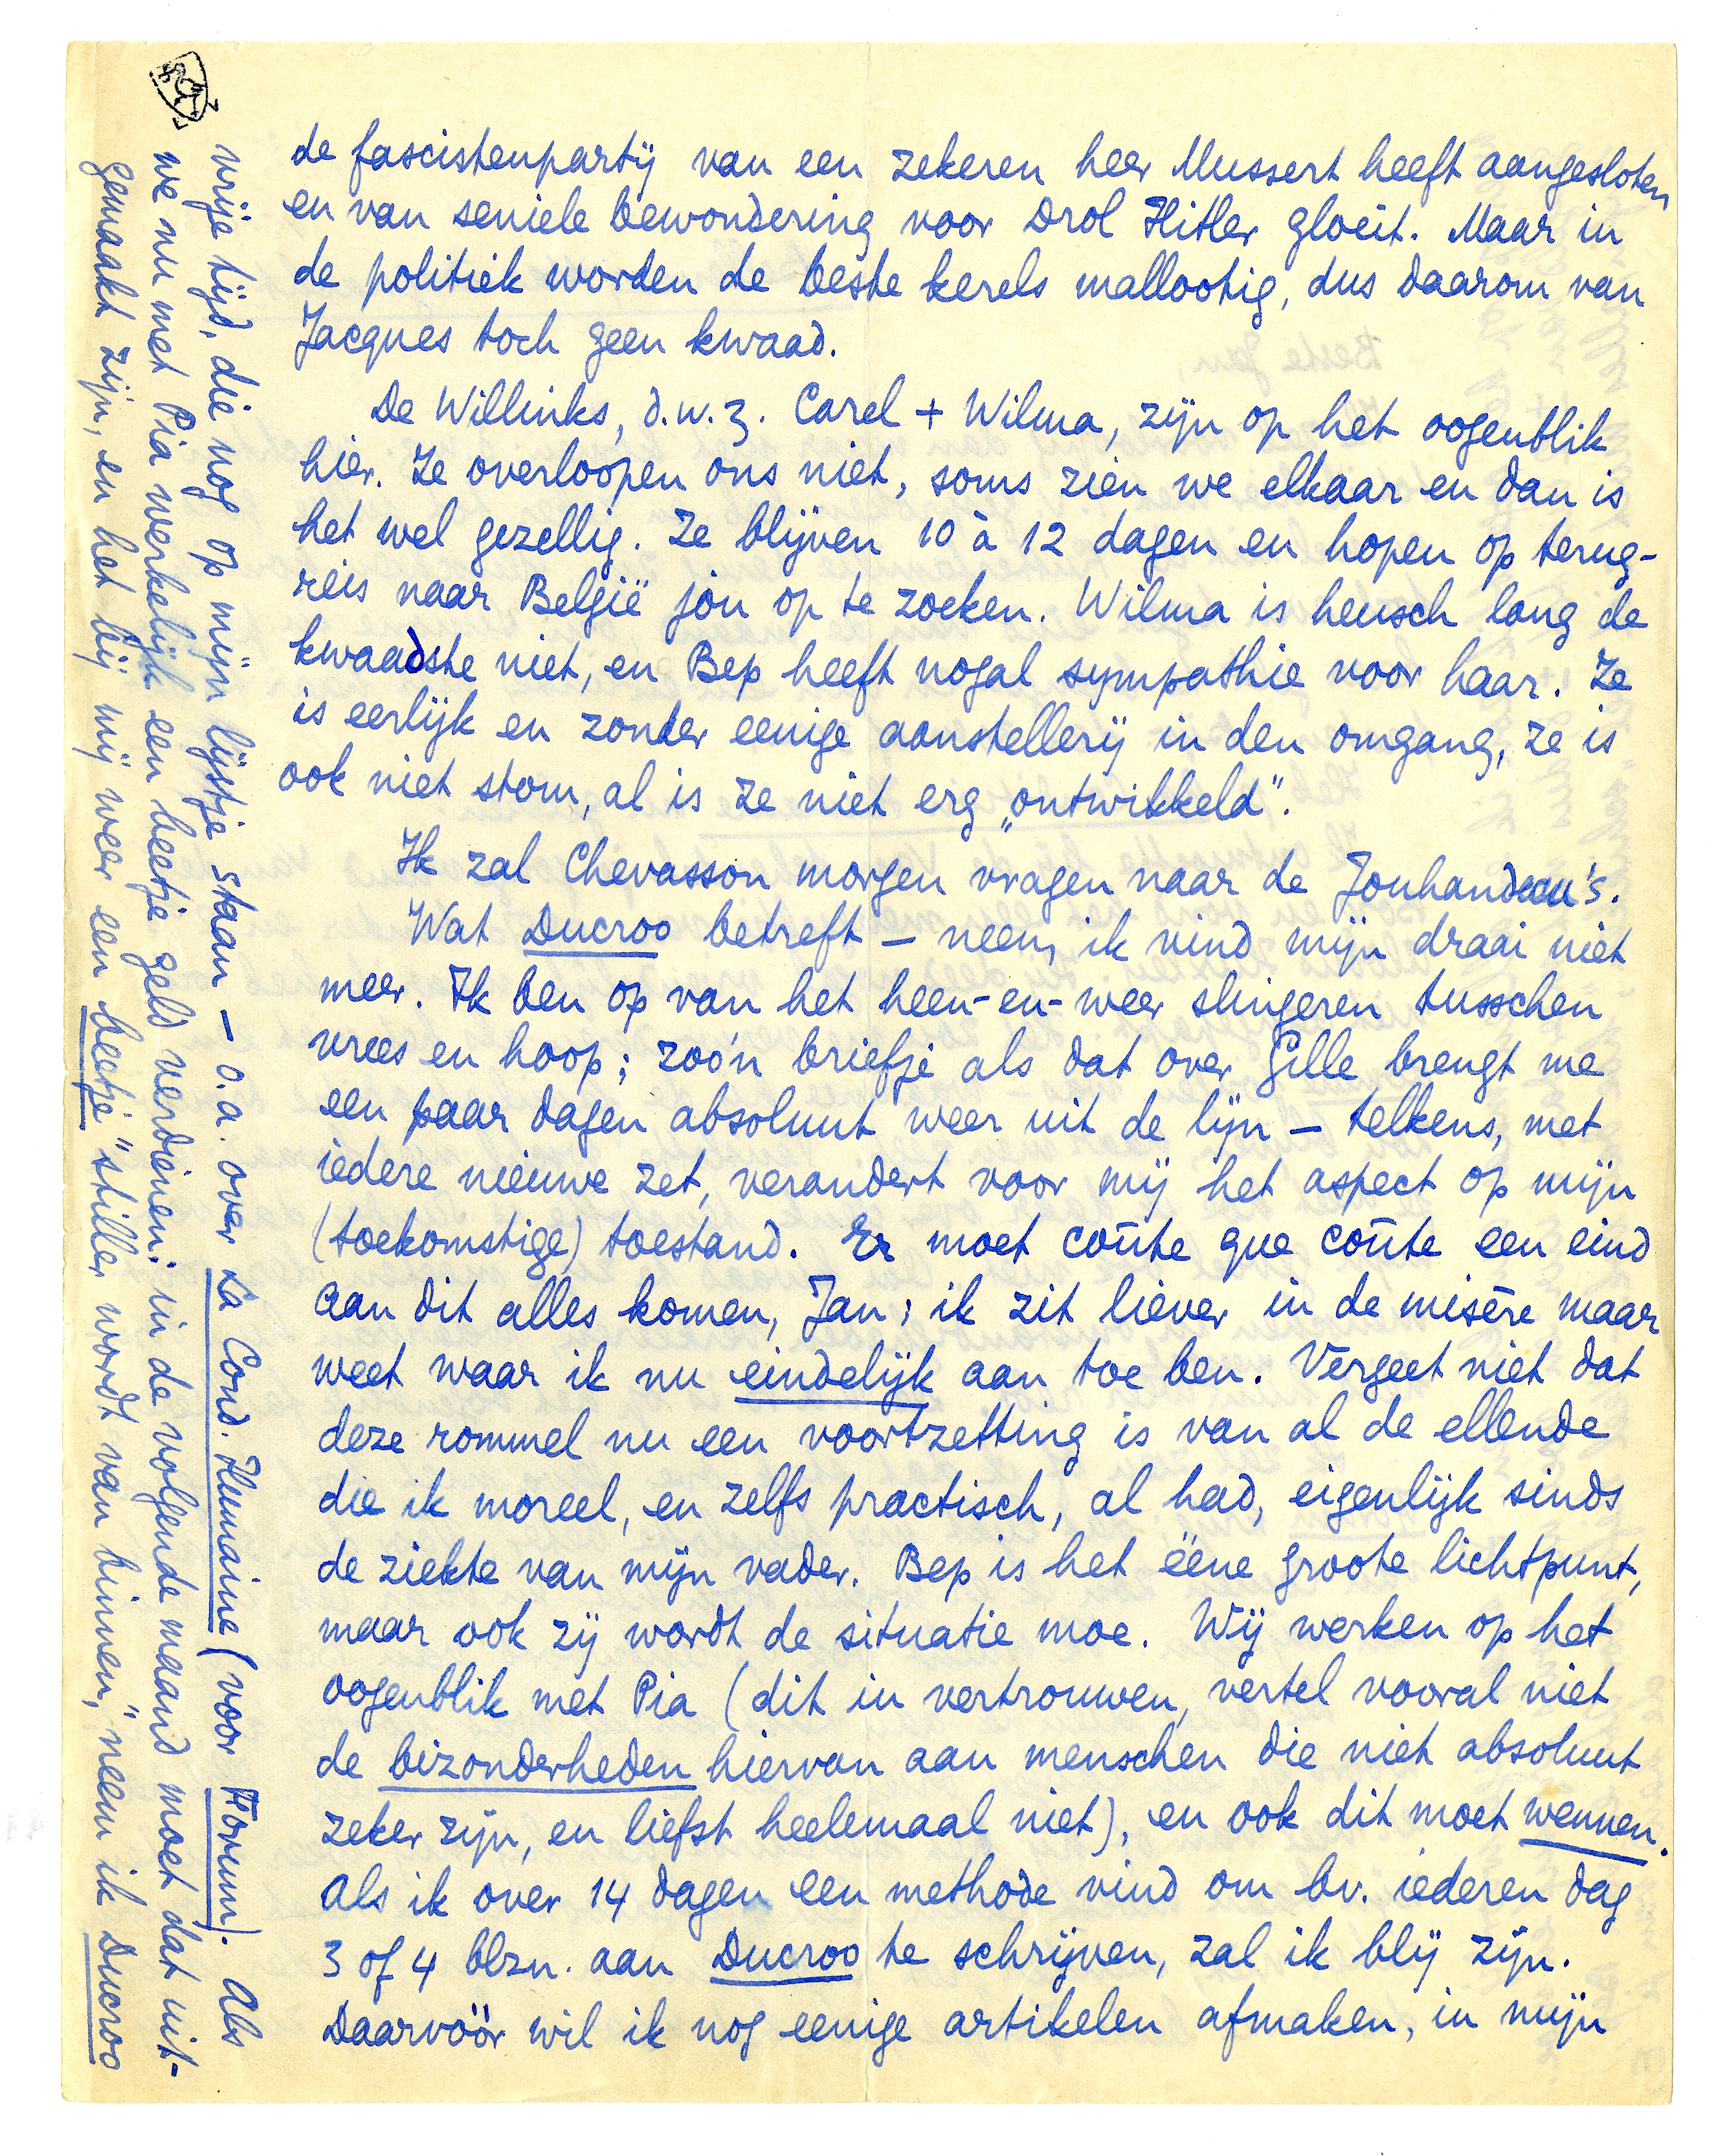 de fascistenpartij van een zekeren heer Mussert heeft aangesloten
en van seniele bewondering voor Drol Hitler gloeit. Maar in
de politiek worden de beste kerels mallootig, dus daarom van
Jacques toch geen kwaad.
De Willinks, d.w.z. Carel + Wilma, zijn op het oogenblik
hier. Ze overloopen ons niet, soms zien we elkaar en dan is
het wel gezellig. Ze blijven 10 à 12 dagen en hopen op terug-
reis naar België jou op te zoeken. Wilma is heusch lang de
kwaadste niet, en Bep heeft nogal sympathie voor haar. Ze
is eerlijk en zonder eenige aanstellerij in den omgang, ze is
ook niet stom, al is ze niet erg „ontwikkeld”.
Ik zal Chevasson morgen vragen naar de Jouhandeau's.
Wat Ducroo betreft — neen, ik vind mijn draai niet
meer. Ik ben op van het heen-en-weer slingeren tusschen
vrees en hoop; zoo'n briefje als dat over Gille brengt me
een paar dagen absoluut weer uit de lijn — telkens, met
iedere nieuwe zet, verandert voor mij het aspect op mijn
(toekomstige) toestand. Er moet coûte que coûte een eind
aan dit alles komen, Jan; ik zit liever in de misère maar
weet waar ik nu eindelijk aan toe ben. Vergeet niet dat
deze rommel nu een voortzetting is van al de ellende
die ik moreel, en zelfs practisch, al had, eigenlijk sinds
de ziekte van mijn vader. Bep is het ééne groote lichtpunt,
maar ook zij wordt de situatie moe. Wij werken op het
oogenblik met Pia (dit in vertrouwen, vertel vooral niet
de bizonderheden hiervan aan menschen die niet absoluut
zeker zijn, en liefst heelemaal niet), en ook dit moet wennen.
Als ik over 14 dagen een methode vind om bv. iederen dag
3 of 4 blzn. aan Ducroo te schrijven, zal ik blij zijn.
Daarvóór wil ik nog eenige artikelen afmaken, in mijn
vrije tijd, die nog op mijn lijstje staan — o.a. over La Cond. Humaine (voor Forum). Als
we nu met Pia werkelijk een beetje geld verdienen: in de volgende maand moet dat uit-
gemaakt zijn, en het bij mij weer een beetje „stiller wordt van binnen,” neem ik Ducroo